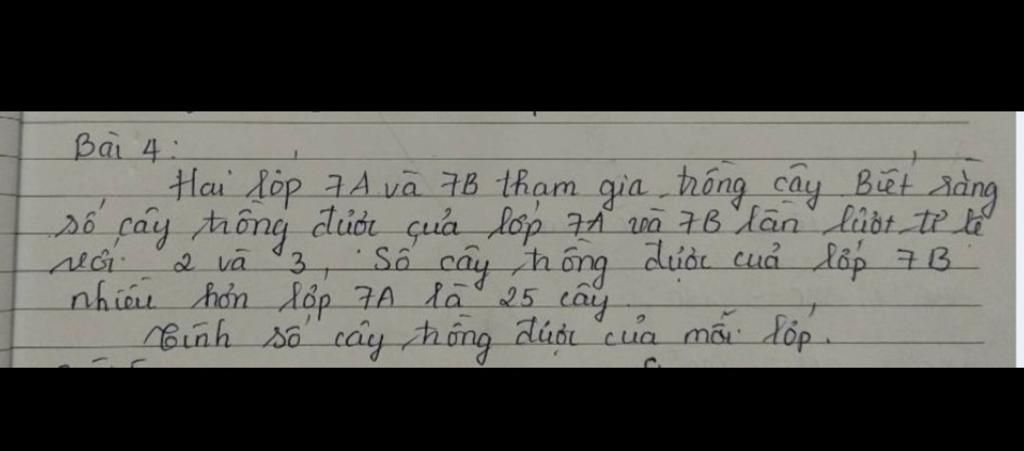 Bài 4:
Hai lớp 7A và 7B tham gia trồng cây Biết rằng
số cây trồng được của lớp 7A và 7B lần lượt tỉ lệ
với 2 và 3, Số cây trồng được của lớp 7B
nhiều hơn lớp 7A là 25 cây.
Tính số cây trồng được của mỗi lớp.